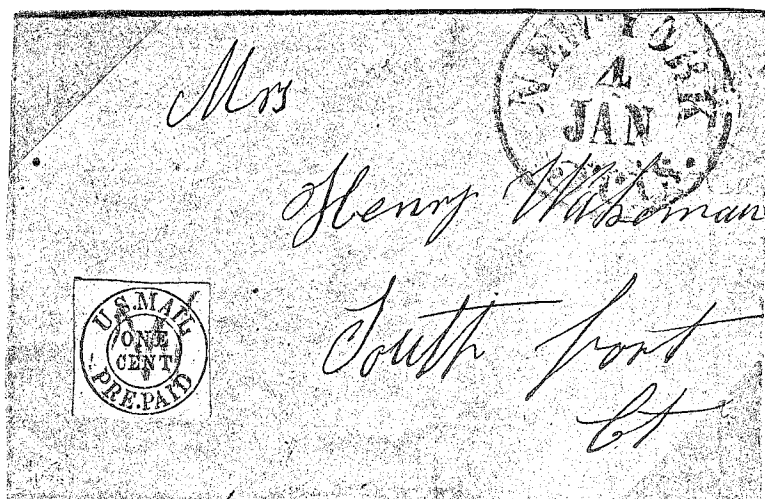 NEW-YORK
4
JAN
Mrs
Henry Wakeman
South port
Ct
U.S. MAIL
ONE
CENT
PRE.PAID